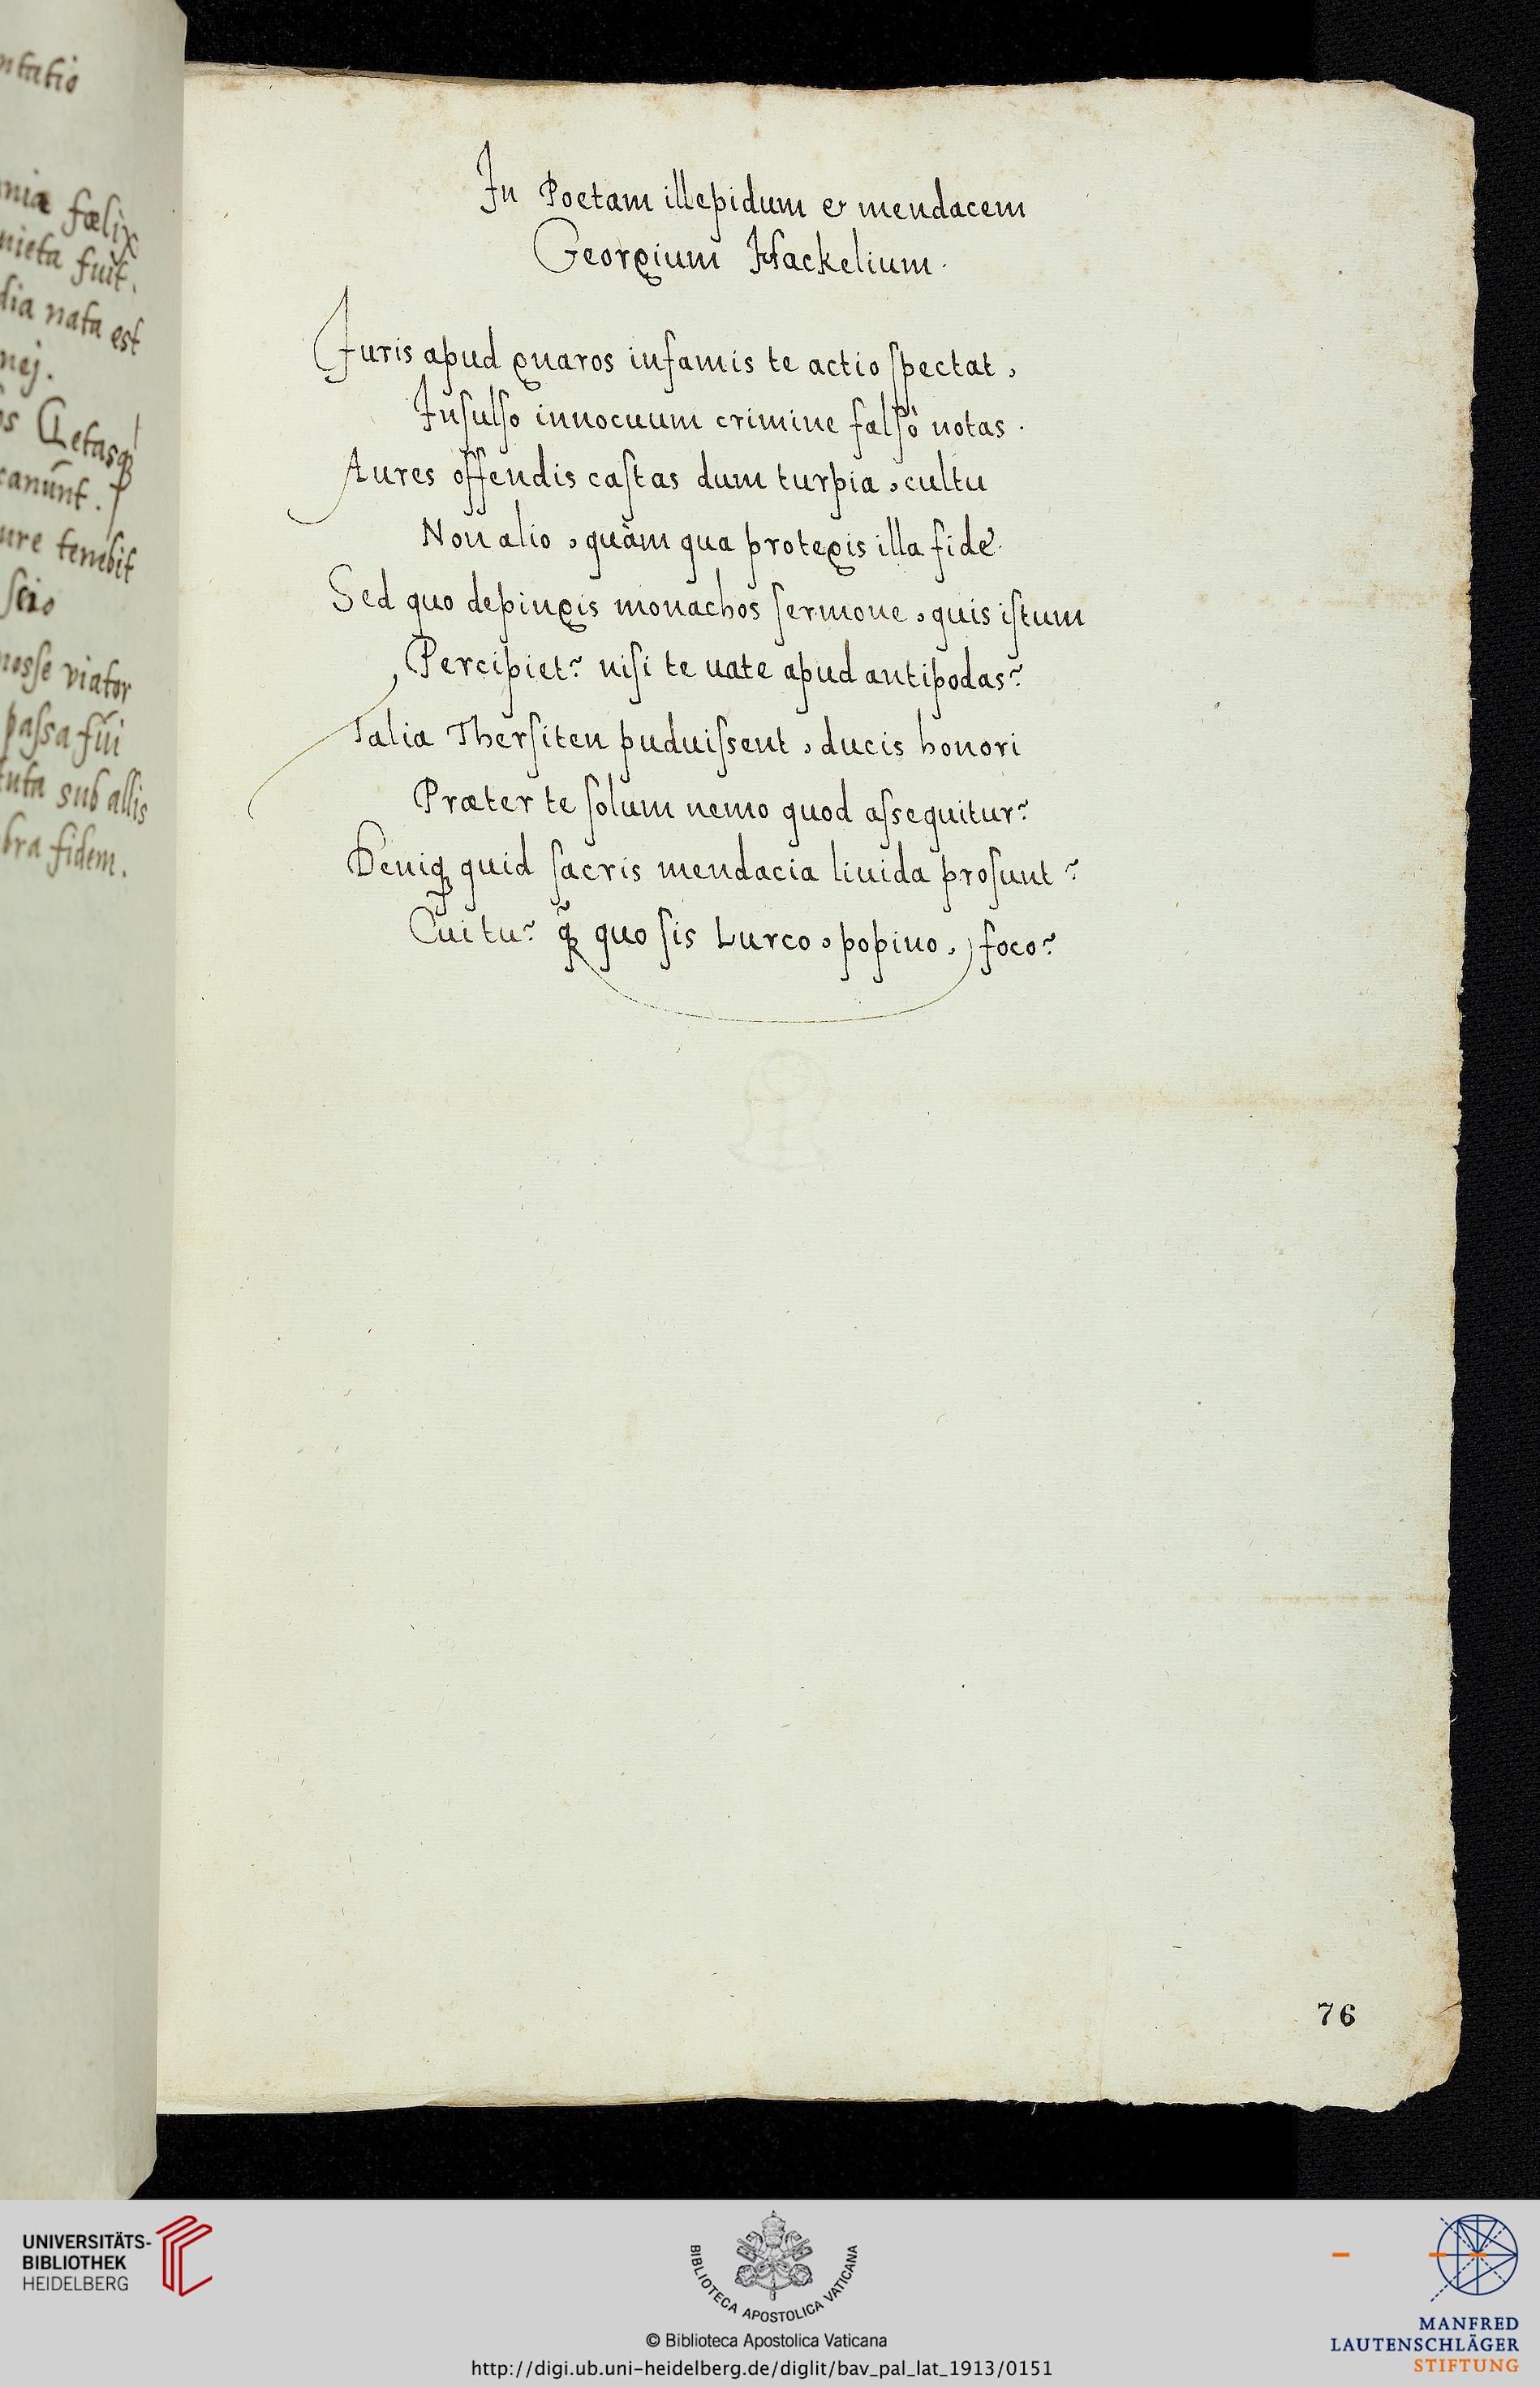 ntatio
niæ fœlix
nieta fuit.
dia nata est
nej.
os Ætasq́
canunt.
ure tenebit
scio
nosse viator
passa fui
tuta sub allis
bra fidem.
In Poetam illepidum & mendacem
Georgium Hackelium.
Juris apud gnaros infamis te actio spectat,
Insulso innocuum crimine falsò notas.
Aures offendis castas dum turpia, cultu
Non alio, quàm qua protegis illa fide.
Sed quo depingis monachos sermone, quis istum
Percipiet? nisi te uate apud antipodas?
Talia Thersiten puduissent, ducis honori
Præter te solum nemo quod assequitur?
Deniq quid sacris mendacia liuida prosunt?
Cui tu? q̃ quo sis Lurco, popino, foco?
76
UNIVERSITÄTS-
BIBLIOTHEK
HEIDELBERG
BIBLIOTECA APOSTOLICA VATICANA
© Biblioteca Apostolica Vaticana
http://digi.ub.uni-heidelberg.de/diglit/bav_pal_lat_1913/0151
MANFRED
LAUTENSCHLÄGER
STIFTUNG